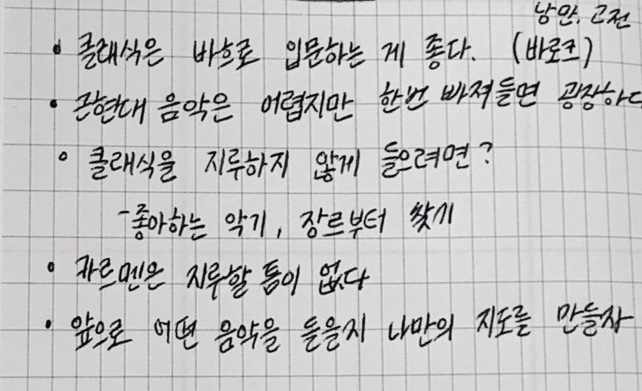 낭만, 고전
• 클래식은 바흐로 입문하는 게 좋다. (바로크)
• 근현대 음악은 어렵지만 한번 빠져들면 굉장하다
• 클래식을 지루하지 않게 들으려면?
- 좋아하는 악기, 장르부터 찾기
• 카르멘은 지루할 틈이 없다
• 앞으로 어떤 음악을 들을지 나만의 지도를 만들자